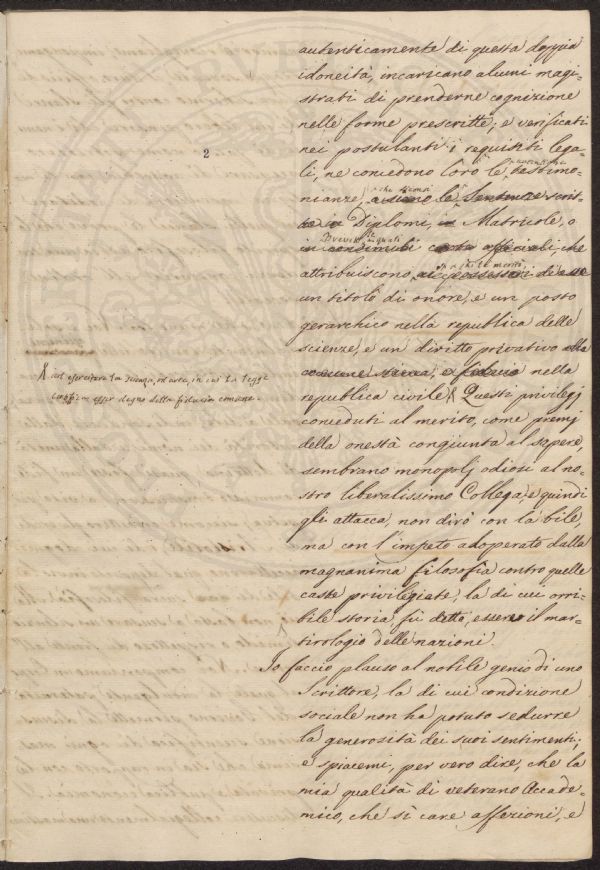 autenticamente di questa doppia
idoneità, incaricano alcuni magi-
strati di prenderne cognizione
nelle forme prescritte; e verificati
nei postulanti i requisiti lega-
li, ne concedono loro le testimo-
nianze, che stansi a siano le Sentenze scrit-
te in Diplomi, in Matricole, o
Brevetti, ai quali in consimili officiali, che
attribuiscono a chi la merita ai possessori
un titolo di onore, e un posto
gerarchico nella republica delle
scienze, e un diritto privativo alla
comune stima, e fiducia nella
republica civile X Questi privilegj
conceduti al merito, come premj
della onestà congiunta al sapere,
sembrano monopolj odiosi al no-
stro liberalissimo Collega, e quindi
gli attacca, non dirò con la bile,
ma con l'impeto adoperato dalla
magnanima filosofia contro quelle
caste privilegiate, la di cui orri-
bile storia fù detto, essere il mar-
tirologio delle nazioni.
Io faccio plauso al nobile genio di uno
Scrittore, la di cui condizione
sociale non ha potuto sedurre
la generosità dei suoi sentimenti;
e spiacemi, per vero dire, che la
mia qualità di veterano Accade-
mico, che sì care affezioni, e
2
X ad esercitare la scienza, od arte, in cui la legge
esser degno della fiducia comune.